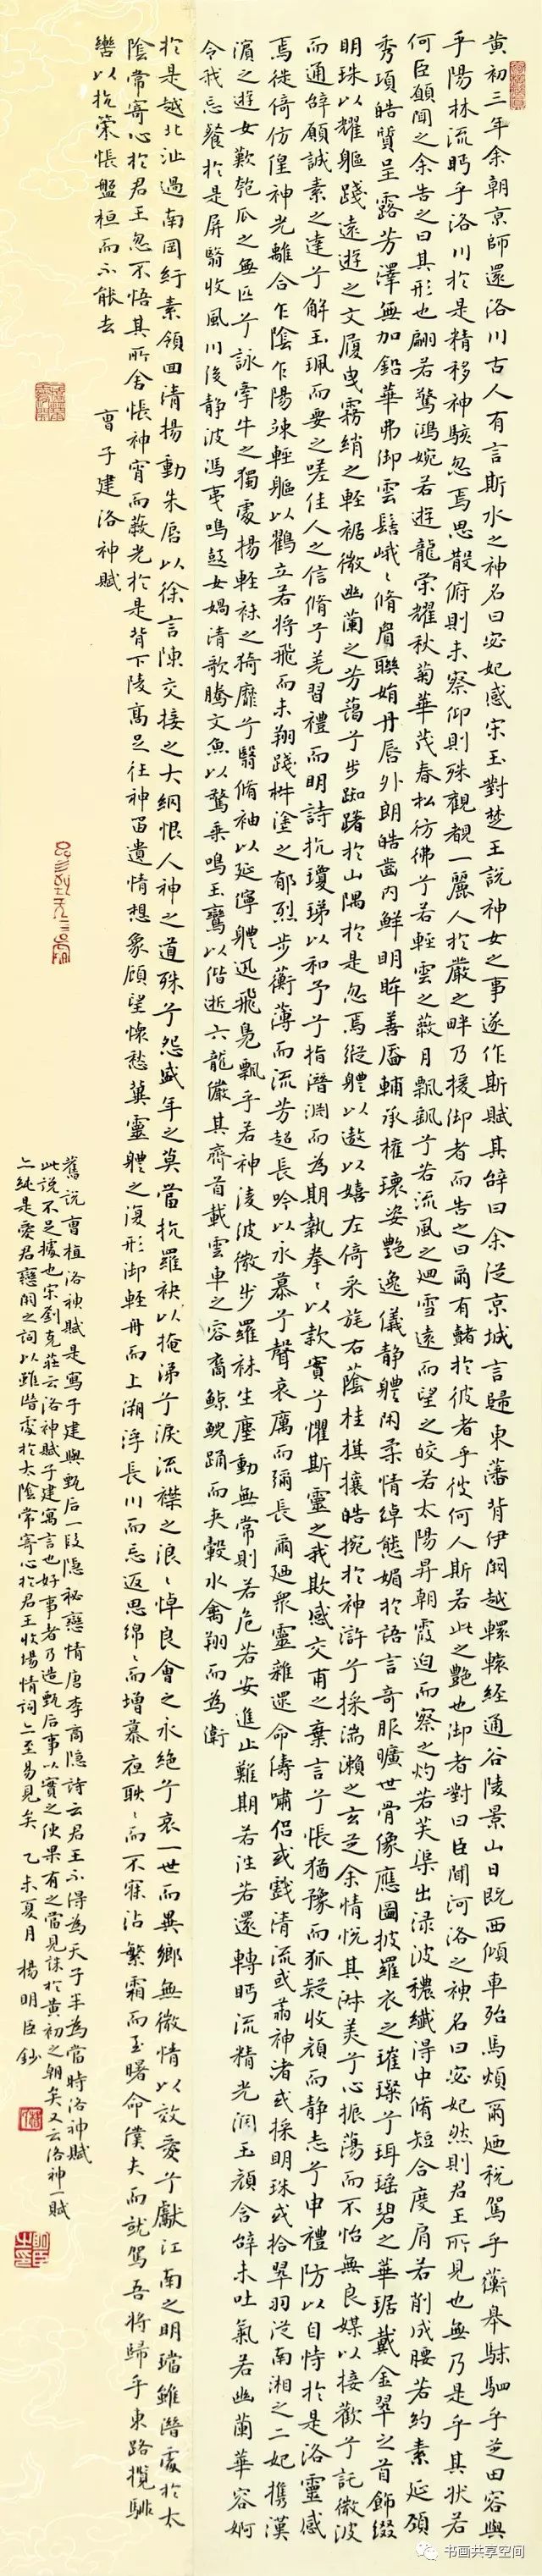 黄初三年余朝京師還洛川古人有言斯水之神名曰宓妃感宋玉對楚王說神女之事遂作斯賦其辭曰余從京城言歸東藩背伊闕越轘轅經通谷陵景山日既西傾車殆馬煩爾迺稅駕乎蘅皋秣駟乎芝田容與
乎陽林流眄乎洛川於是精移神駭忽焉思散俯則未察仰則殊觀覩一麗人於巖之畔乃援御者而告之曰爾有覿於彼者乎彼何人斯若此之艷也御者對曰臣聞河洛之神名曰宓妃然則君王所見也無乃是乎其狀若
何臣願聞之余告之曰其形也翩若驚鴻婉若遊龍荣耀秋菊華茂春松彷彿兮若輕雲之蔽月飄飖兮若流風之迴雪遠而望之皎若太陽昇朝霞迫而察之灼若芙渠出渌波穠纖得中脩短合度肩若削成腰若約素延頸
秀項皓質呈露芳澤無加鉛華弗御雲髻峨〻脩眉聯娟丹唇外朗皓齒内鮮明眸善睞輔承權瓌姿艷逸儀静體闲柔情綽態媚於語言奇服曠世骨像應圖披羅衣之璀璨兮珥瑶碧之華琚戴金翠之首飾綴
明珠以耀軀踐遠遊之文履曳霧綃之輕裾微幽蘭之芳藹兮步踟躇於山隅於是忽焉縱體以遨以嬉左倚采旄右蔭桂旗攘皓捥於神滸兮採湍瀨之玄芝余情悦其淑美兮心振蕩而不怡無良媒以接歡兮託微波
而通辭願誠素之達兮解玉珮而要之嗟佳人之信脩兮羌習禮而明詩抗瓊珶以和予兮指潛淵而為期執拳〻以款實兮懼斯靈之我欺感交甫之棄言兮悵猶豫而狐疑收顏而静志兮申禮防以自恃於是洛靈感
焉徙倚彷徨神光離合乍陰乍陽竦輕軀以鶴立若將飛而未翔踐椒塗之郁烈步蘅薄而流芳超長吟以永慕兮聲哀厲而彌長爾迺衆靈雜遝命儔嘯侣或戲清流或翥神渚或採明珠或拾翠羽從南湘之二妃攜漢
濱之遊女歎匏瓜之無匹兮詠牽牛之獨處揚輕袿之猗靡兮翳脩袖以延佇體迅飛凫飄乎若神淩波微步羅袜生塵動無常則若危若安進止難期若往若還轉眄流精光潤玉顏含辭未吐氣若幽蘭華容婀
令我忘餐於是屏翳收風川後静波馮夷鳴鼓女媧清歌騰文魚以警乘鳴玉鸞以偕逝六龍儼其齊首載雲車之容裔鯨鯢踊而夹轂水禽翔而為衛
於是越北沚過南岡紆素領回清揚動朱唇以徐言陳交接之大綱恨人神之道殊兮怨盛年之莫當抗羅袂以掩涕兮淚流襟之浪〻悼良會之永絶兮哀一世而異鄉無微情以效愛兮獻江南之明璫雖潛處於太
陰常寄心於君王忽不悟其所舍悵神宵而蔽光於是背下陵高足往神留遺情想象顧望懷愁冀靈體之復形御輕舟而上溯浮長川而忘返思綿〻而增慕夜耿〻而不寐沾繁霜而至曙命僕夫而就駕吾將歸乎東路攬騑
轡以抗策悵盤桓而不能去　曹子建洛神賦
舊說曹植洛神賦是寫子建與甄后一段隐秘戀情唐李商隐詩云君王不得為天子半為當時洛神賦
此說不足據也宋劉克莊云洛神賦子建寓言也好事者乃造甄后事以實之使果有之當見誅於黄初之朝矣又云洛神一賦
亦純是愛君戀闕之词以雖潛處於太陰常寄心於君王收場情詞亦至易見矣　乙未夏月　楊明臣鈔
书画共享空间